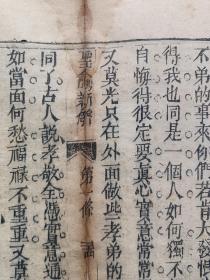 不弟的事來你們若肯大發
得我也同是一個人如何獨不
自悔得很定要真心實意常常
又莫光只在外面做些孝弟的
聖諭新解 第一條
同了古人説孝敬全憑實意通
如當面何愁福祿不重重又莫